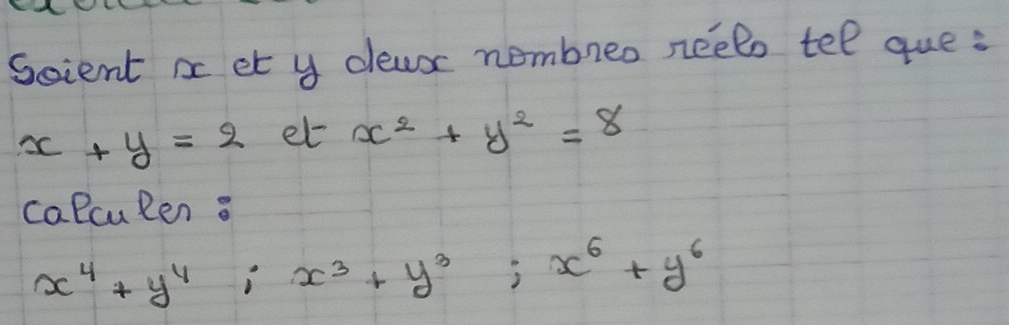 Soient x et y deux nombres réels tel que :
x + y = 2 et x² + y² = 8
calculer :
x⁴ + y⁴ ; x³ + y³ ; x⁶ + y⁶